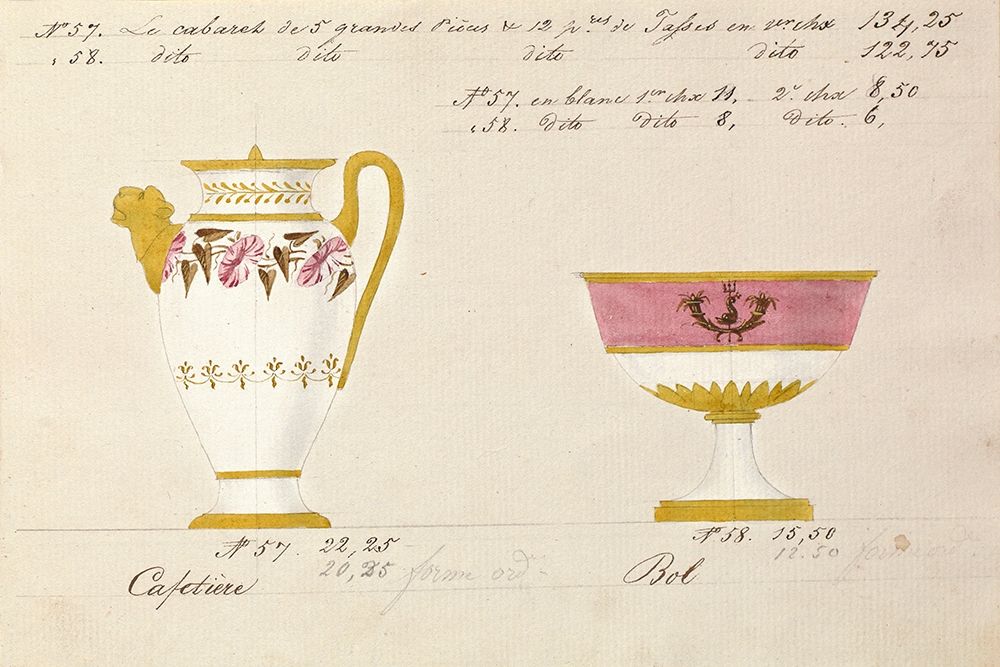 N° 57. Le cabaret de 5 grandes Piéces & 12 p.res de Tasses en 1er chx 134,25
" 58. dito dito dito dito 122,75
N° 57. en blanc 1er chx 11, 2e chx 8,50
" 58. Dito Dito 8, Dito. 6,
N° 57. 22,25
20,25 forme ord.
Cafetière
N° 58. 15,50
12.50 forme ord.
Bol